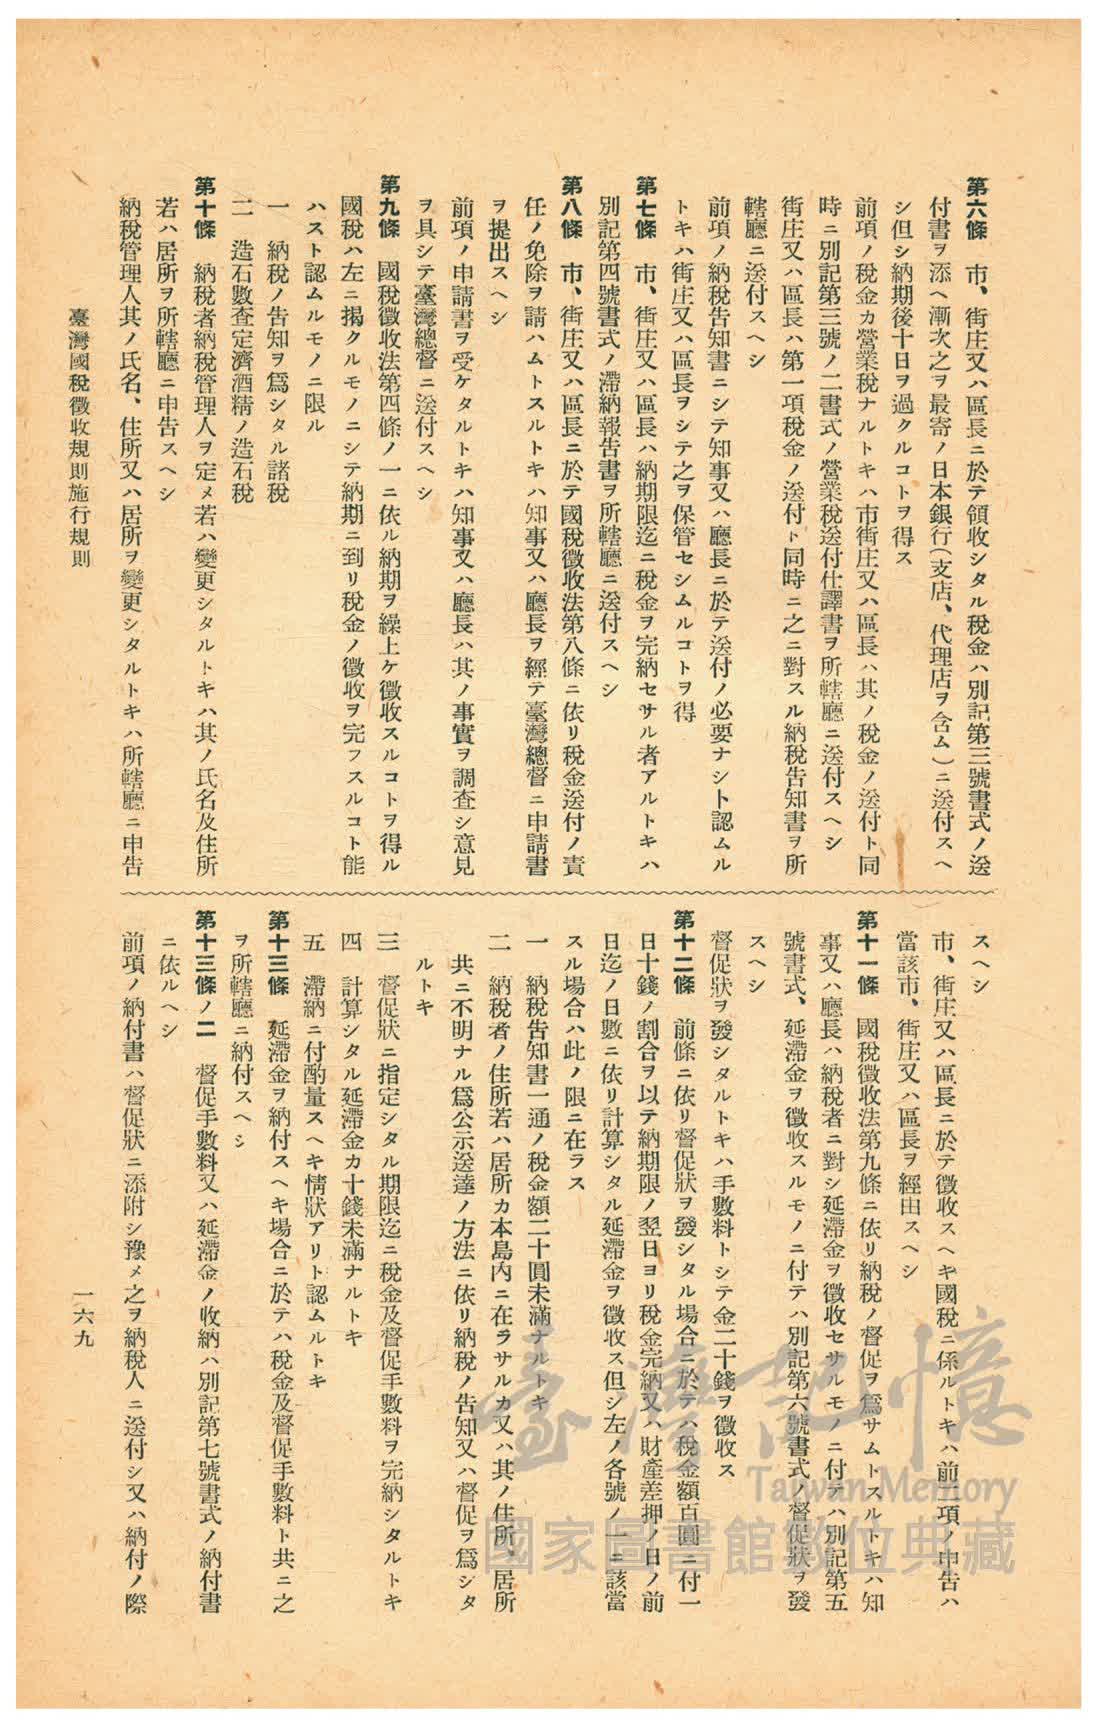 第六條　市、街庄又ハ區長ニ於テ領收シタル稅金ハ別記第三號書式ノ送
付書ヲ添ヘ漸次之ヲ最寄ノ日本銀行(支店、代理店ヲ含ム)ニ送付スヘ
シ但シ納期後十日ヲ過クルコトヲ得ス
前項ノ稅金カ營業稅ナルトキハ市街庄又ハ區長ハ其ノ稅金ノ送付ト同
時ニ別記第三號ノ二書式ノ營業稅送付仕譯書ヲ所轄廳ニ送付スヘシ
街庄又ハ區長ハ第一項稅金ノ送付ト同時ニ之ニ對スル納稅告知書ヲ所
轄廳ニ送付スヘシ
前項ノ納稅告知書ニシテ知事又ハ廳長ニ於テ送付ノ必要ナシト認ムル
トキハ街庄又ハ區長ヲシテ之ヲ保管セシムルコトヲ得
第七條　市、街庄又ハ區長ハ納期限迄ニ稅金ヲ完納セサル者アルトキハ
別記第四號書式ノ滯納報告書ヲ所轄廳ニ送付スヘシ
第八條　市、街庄又ハ區長ニ於テ國稅徵收法第八條ニ依リ稅金送付ノ責
任ノ免除ヲ請ハムトスルトキハ知事又ハ廳長ヲ經テ臺灣總督ニ申請書
ヲ提出スヘシ
前項ノ申請書ヲ受ケタルトキハ知事又ハ廳長ハ其ノ事實ヲ調査シ意見
ヲ具シテ臺灣總督ニ送付スヘシ
第九條　國稅徵收法第四條ノ一ニ依ル納期ヲ繰上ケ徵收スルコトヲ得ル
國稅ハ左ニ揭クルモノニシテ納期ニ到リ稅金ノ徵收ヲ完フスルコト能
ハスト認ムルモノニ限ル
一　納稅ノ告知ヲ爲シタル諸稅
二　造石數查定濟酒精ノ造石稅
第十條　納稅者納稅管理人ヲ定メ若ハ變更シタルトキハ其ノ氏名及住所
若ハ居所ヲ所轄廳ニ申告スヘシ
納稅管理人其ノ氏名、住所又ハ居所ヲ變更シタルトキハ所轄廳ニ申告
スヘシ
市、街庄又ハ區長ニ於テ徵收スヘキ國稅ニ係ルトキハ前二項ノ申告ハ
當該市、街庄又ハ區長ヲ經由スヘシ
第十一條　國稅徵收法第九條ニ依リ納稅ノ督促ヲ爲サムトスルトキハ知
事又ハ廳長ハ納稅者ニ對シ延滯金ヲ徵收セサルモノニ付テハ別記第五
號書式、延滯金ヲ徵收スルモノニ付テハ別記第六號書式ノ督促狀ヲ發
スヘシ
督促狀ヲ發シタルトキハ手數料トシテ金二十錢ヲ徵收ス
第十二條　前條ニ依リ督促狀ヲ發シタル場合ニ於テハ稅金額百圓ニ付一
日十錢ノ割合ヲ以テ納期限ノ翌日ヨリ稅金完納又ハ財產差押ノ日ノ前
日迄ノ日數ニ依リ計算シタル延滯金ヲ徵收ス但シ左ノ各號ノ一ニ該當
スル場合ハ此ノ限ニ在ラス
一　納稅告知書一通ノ稅金額二十圓未滿ナルトキ
二　納稅者ノ住所若ハ居所カ本島內ニ在ラサルカ又ハ其ノ住所、居所
共ニ不明ナル爲公示送達ノ方法ニ依リ納稅ノ告知又ハ督促ヲ爲シタ
ルトキ
三　督促狀ニ指定シタル期限迄ニ稅金及督促手數料ヲ完納シタルトキ
四　計算シタル延滯金カ十錢未滿ナルトキ
五　滯納ニ付酌量スヘキ情狀アリト認ムルトキ
第十三條　延滯金ヲ納付スヘキ場合ニ於テハ稅金及督促手數料ト共ニ之
ヲ所轄廳ニ納付スヘシ
第十三條ノ二　督促手數料又ハ延滯金ノ收納ハ別記第七號書式ノ納付書
ニ依ルヘシ
前項ノ納付書ハ督促狀ニ添附シ豫メ之ヲ納稅人ニ送付シ又ハ納付ノ際
臺灣國稅徵收規則施行規則
一六九
臺灣記憶
Taiwan Memory
國家圖書館數位典藏